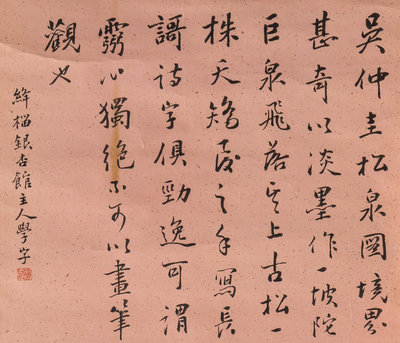 吳仲圭松泉圖境界
甚奇以淡墨作一坡陀
巨泉飛落其上古松一
株夭矯之手寫長
謌詩字俱勁逸可謂
靈心獨絕不可以畫筆
觀也
絳銀杏館主人學字